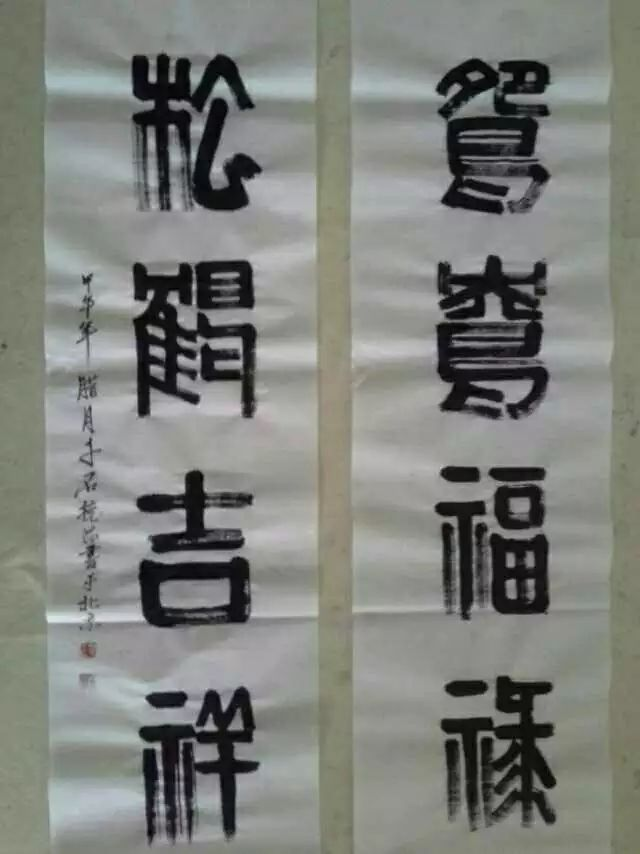 鸳鸯福禄
松鹤吉祥
甲午年腊月石书于北京